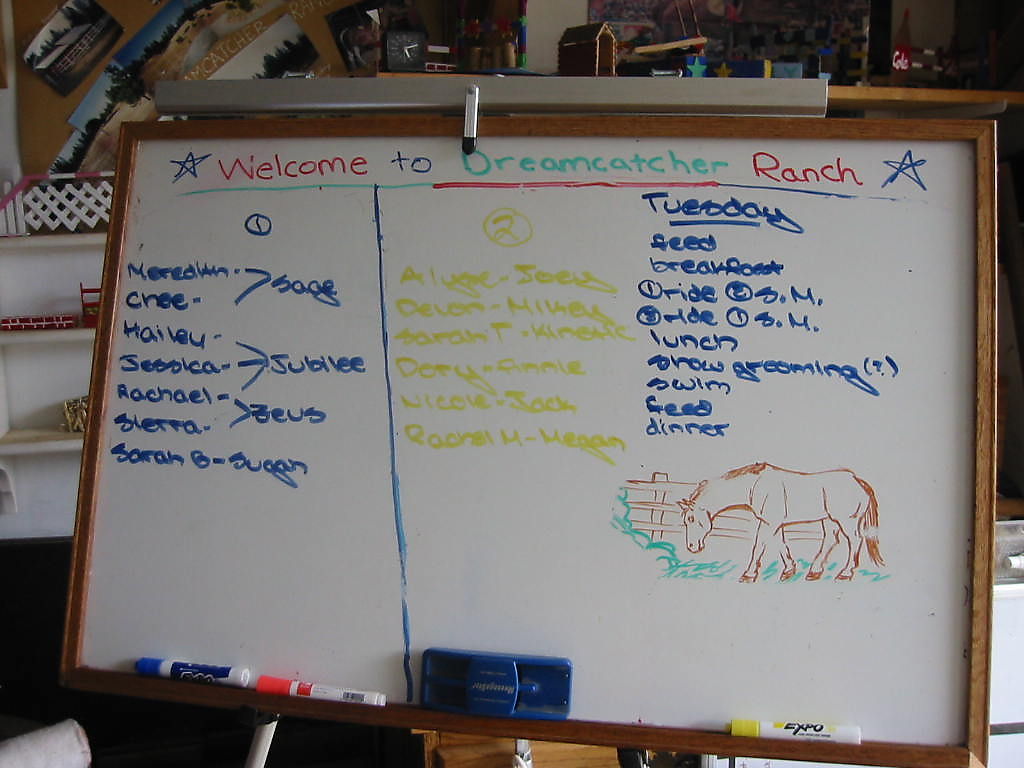 Welcome to Dreamcatcher Ranch
①
Meredith -
Chee - Sage
Hailey -
Jessica - Jubilee
Rachael -
Sierra - Zeus
Sarah B - Sugar
②
Alyse - Joey
Devon - Mikey
Sarah T - Kinetic
Dory - Annie
Nicole - Jack
Rachel M - Megan
Tuesday
feed
breakfast
① ride ② S.M.
② ride ① S.M.
lunch
show grooming (?)
swim
feed
dinner
EXPO